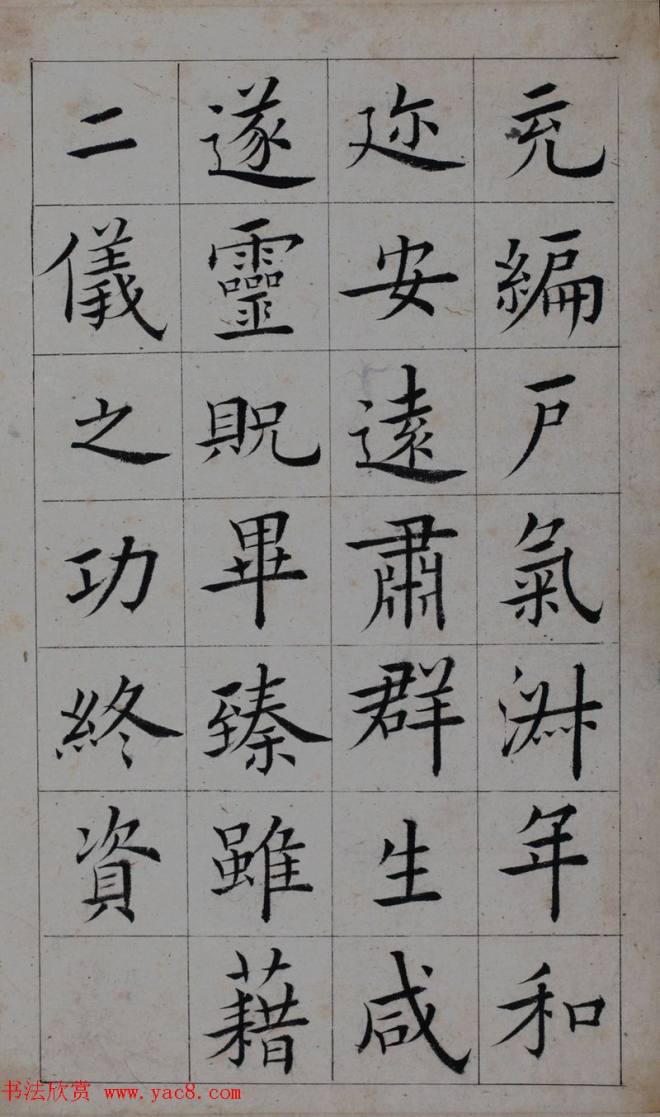 充編戶氣淋年和
迩安遠肅群生咸
遂靈貺畢臻雖藉
二儀之功終資
书法欣赏 www.yac8.com